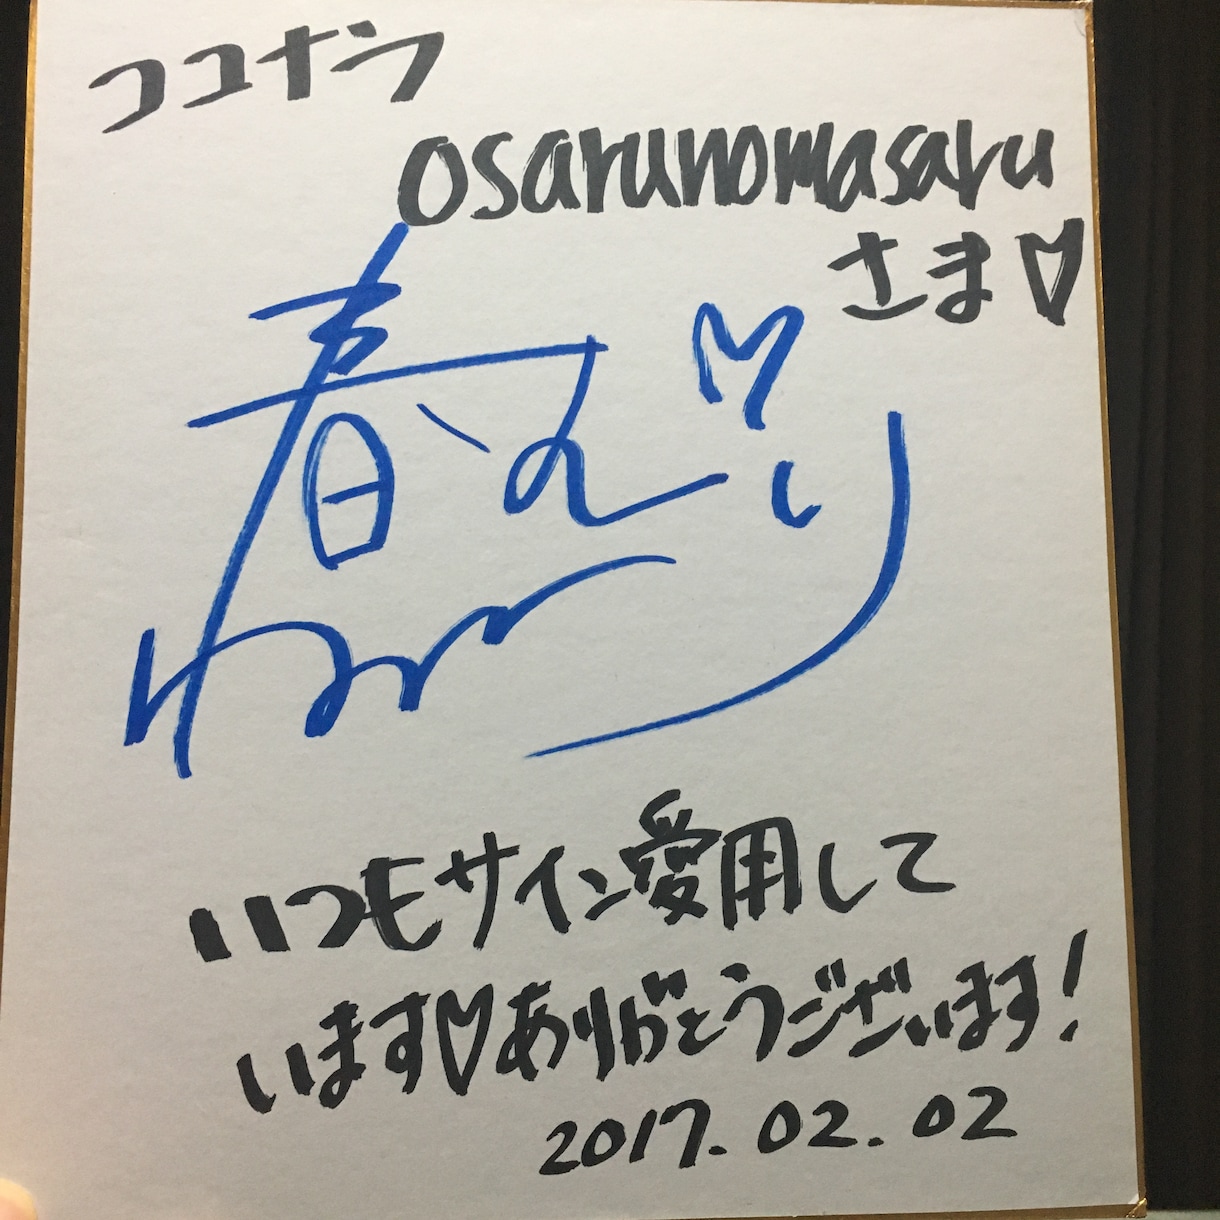 ココナラ
osarunomasaru
さま♡
いつもサイン愛用して
います♡ありがとうございます!
2017.02.02